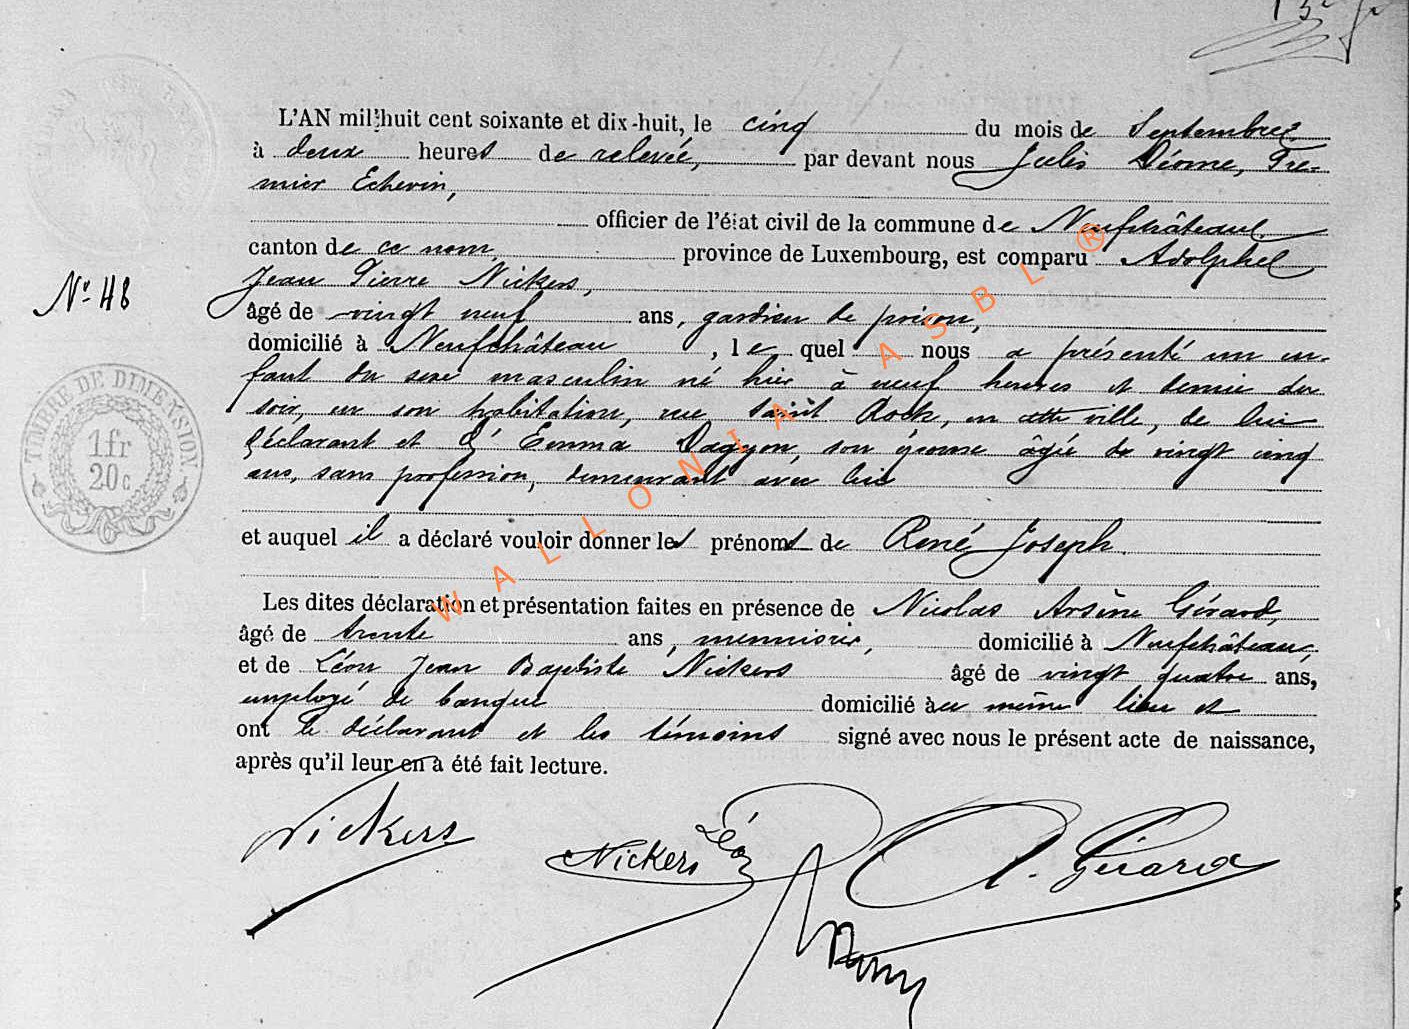 L'AN mil huit cent soixante et dix-huit, le cinq du mois de Septembre,
à deux heures de relevée, par devant nous Jules Déome, Pre-
mier Echevin,
officier de l'état civil de la commune de Neufchâteau
canton de ce nom, province de Luxembourg, est comparu Adolphe
Jean Pierre Nickers,
N° 48
âgé de vingt neuf ans, gardien de prison,
domicilié à Neufchâteau, lequel nous a présenté un en-
fant du sexe masculin né hier à neuf heures et demie du
soir, en son habitation, rue Saint Roch, en cette ville, de lui
déclarant et d'Emma son épouse âgée de vingt cinq
ans, sans profession, demeurant avec lui
et auquel il a déclaré vouloir donner les prénoms de René Joseph.
Les dites déclaration et présentation faites en présence de Nicolas Arsène Gérard,
âgé de trente ans, menuisier, domicilié à Neufchâteau,
et de Léon Jean Baptiste Nickers âgé de vingt quatre ans,
employé de banque domicilié au même lieu et
ont le déclarant et les témoins signé avec nous le présent acte de naissance,
après qu'il leur en a été fait lecture.
Nickers
Nickers Léon
A. Gérard
TIMBRE DE DIMENSION
1fr
20c
WALLONIA ASBL ®